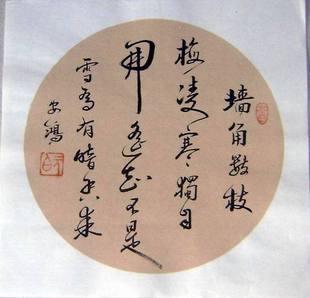 墙角数枝
梅凌寒獨自
開遥知不是
雪為有暗香来
安鴻